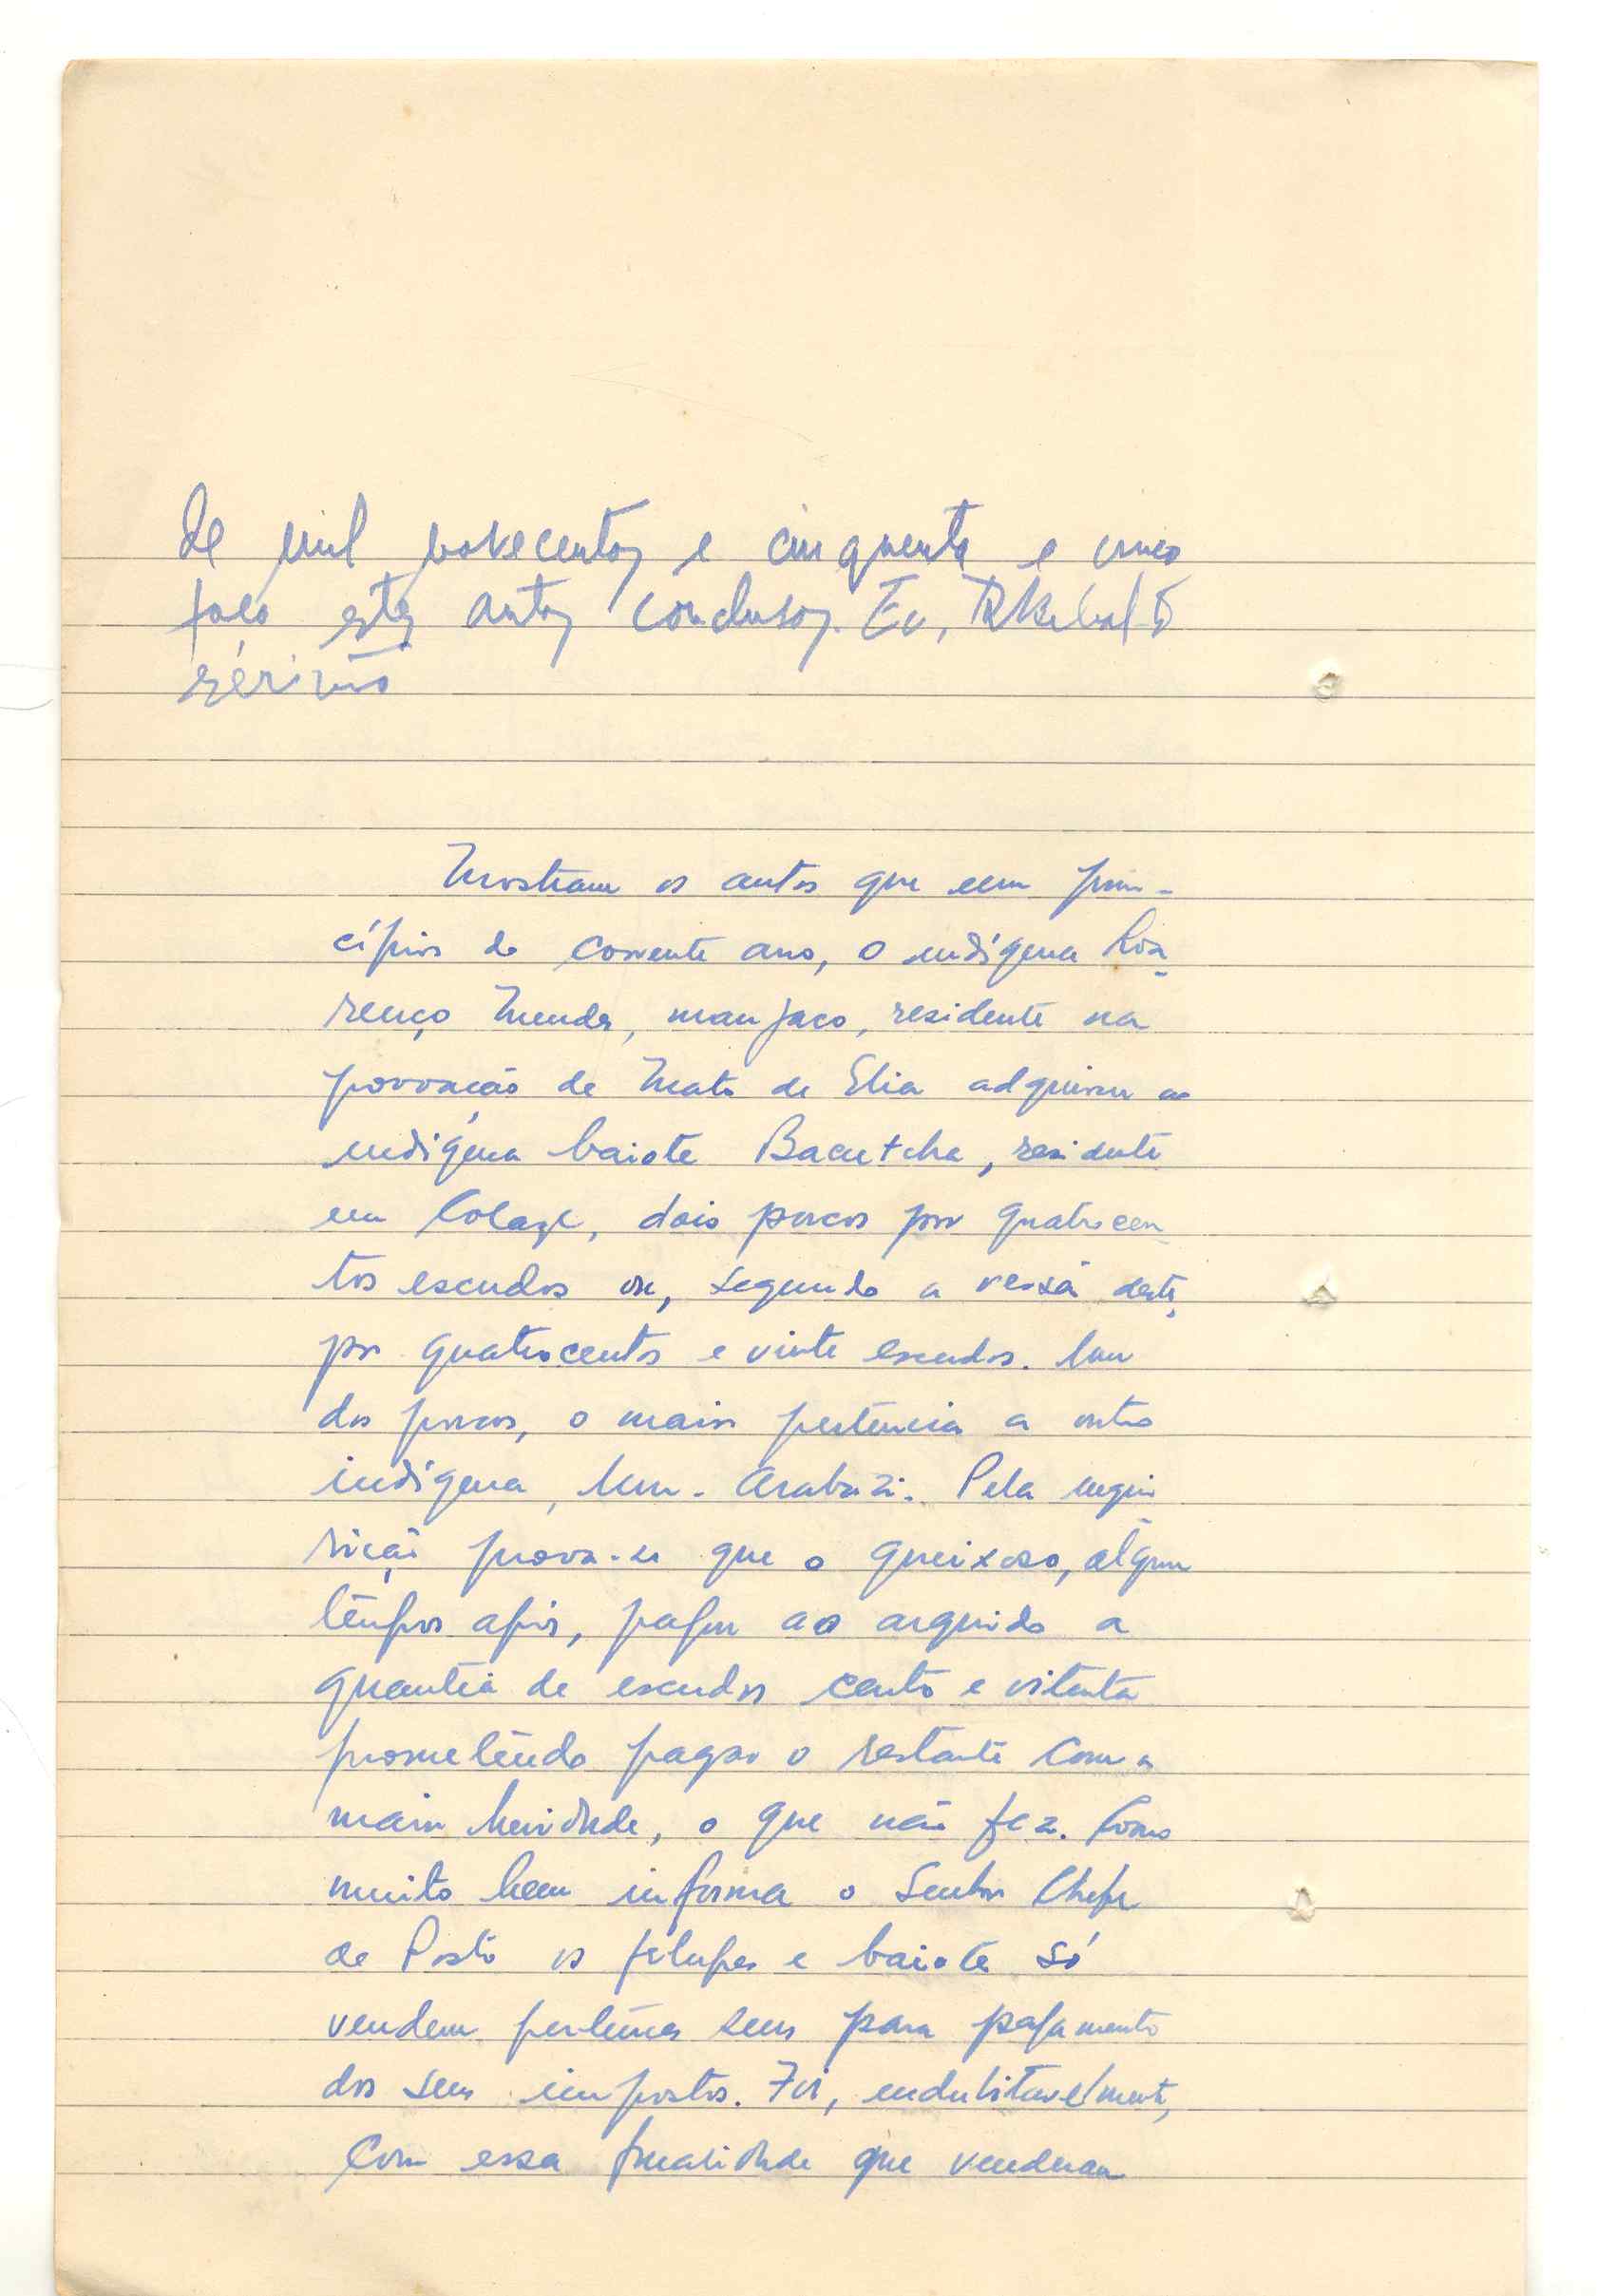 de mil novecentos e cinquenta e cinco
faço estes autos conclusos. Eu,
escrivão
Mostram os autos que em prin-
cípios do corrente ano, o indígena Lou-
renço Mendes, manjaco, residente na
povoação de Mato de Elia adquiriu ao
indígena baiote Bacutche, residente
em Colage, dois porcos por quatrocen
tos escudos ou, segundo a versão deste,
por quatrocentos e vinte escudos. Um
dos porcos, o maior pertencia a outro
indígena, Arabuzi. Pela inqui
rição prova-se que o queixoso, algum
tempos após, pagou ao arguido a
quantia de escudos cento e oitenta
prometendo pagar o restante com a
maior brevidade, o que não fez. Como
muito bem informa o Senhor Chefe
de Posto os felupes e baiotes só
vendem pertences seus para pagamento
dos seus impostos. Foi, indubitavelmente,
com essa finalidade que venderam